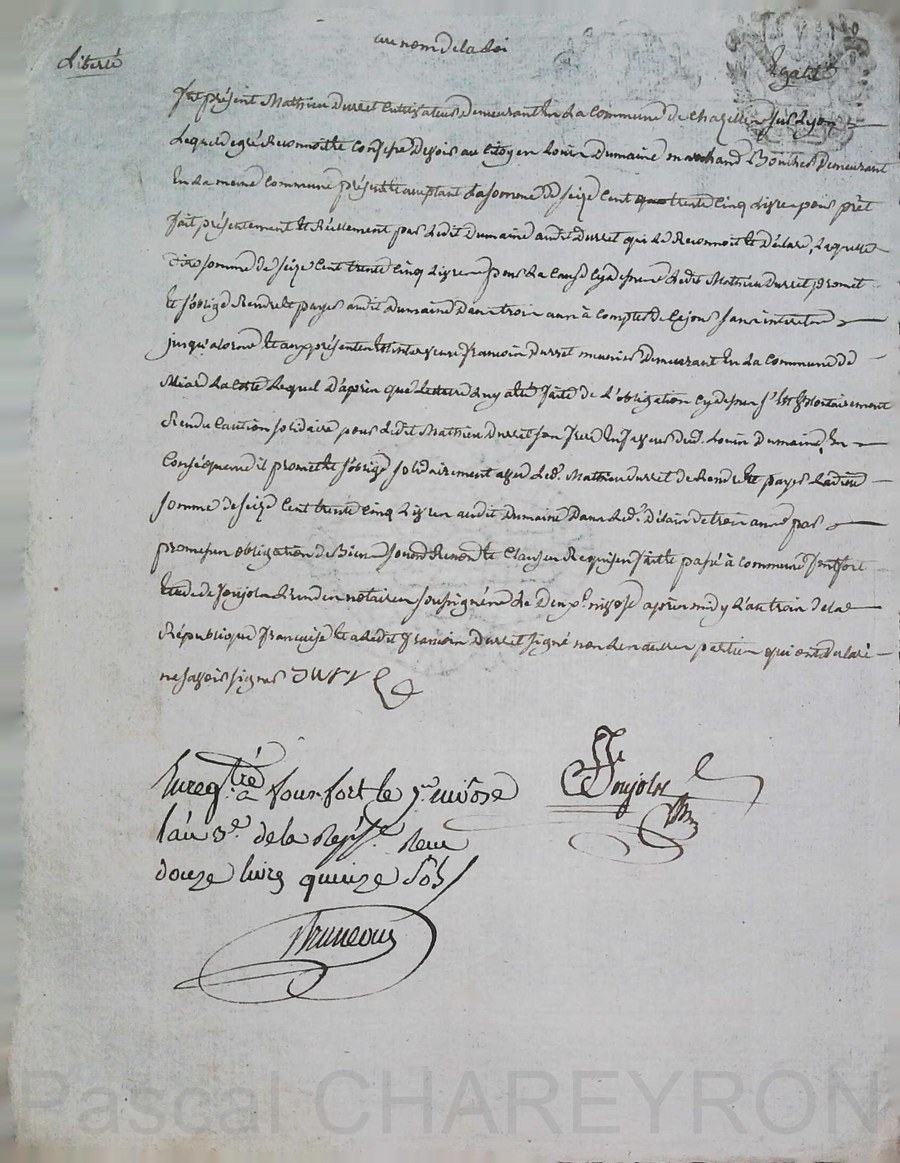 au nom de la Loi
Liberté Egalité
fut présent Mathieu Durret Cultivateur demeurant En La Commune de Chazelle sur Lyon
Lequel de gré Reconnoit et Confesse devoir au Citoyen Louis Dumaine marchand Boucher Demeurant
En La meme Commune présent et acceptant La somme de seize Cent trente Cinq Livres pour prêt
fait présentement et Réellement par Ledit Dumaine audit Durret qui Le Reconnoit et déclare, Laquelle
dite somme de seize Cent trente Cinq Livres pour La Cause Cy dessus Ledit Mathieu Durret promet
et s'oblige Rendre et payer audit Dumaine Dans trois ans à Compter de Ce jour sans interets
jusqu'alors et aux présentes Est intervenu francois Durret meunier Demeurant En La Commune de
La Coste Lequel D'après que Lecture Luy a été faite de L'obligation Cy dessus s'Est volontairement
Rendu Caution solidaire pour Ledit Mathieu Durret son frere En faveur dud. Louis Dumaine, En
Conséquence il promet et s'oblige solidairement avec Led. Mathieu Durret de Rendre et payer Ladite
somme de seize Cent trente Cinq Livres audit Dumaine Dans Led. Délai de trois ans par
promesses obligation de Biens Renonce et Clauses Requises fait et passé à Commune fontfort
Etude de Ponjols notaires soussignés Le nivose après midy L'an trois de La
République francaise et a Ledit francois Durret signé non Les autres parties qui ont Déclaré
ne savoir signer
Enregtré à founfort le nivose
l'an 3e de la Repq.e Reçu
douze livres quinze sols
Bruneau